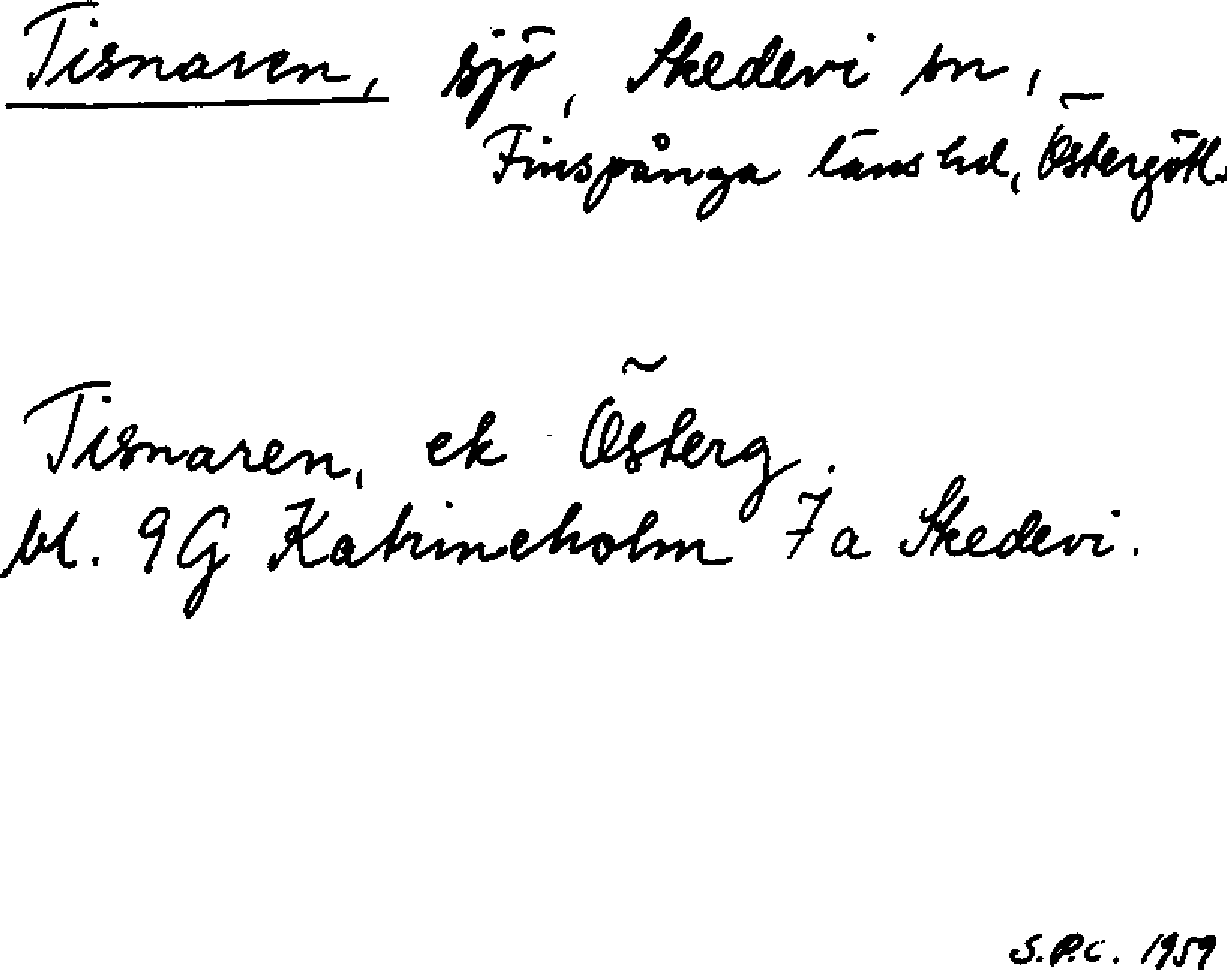 Tisnaren, sjö, Skedevi sn,
Finspånga läns hd, Östergötl.
Tisnaren, ek Österg.
bl. 9G Katrineholm 7a Skedevi.
S.P.C. 1959